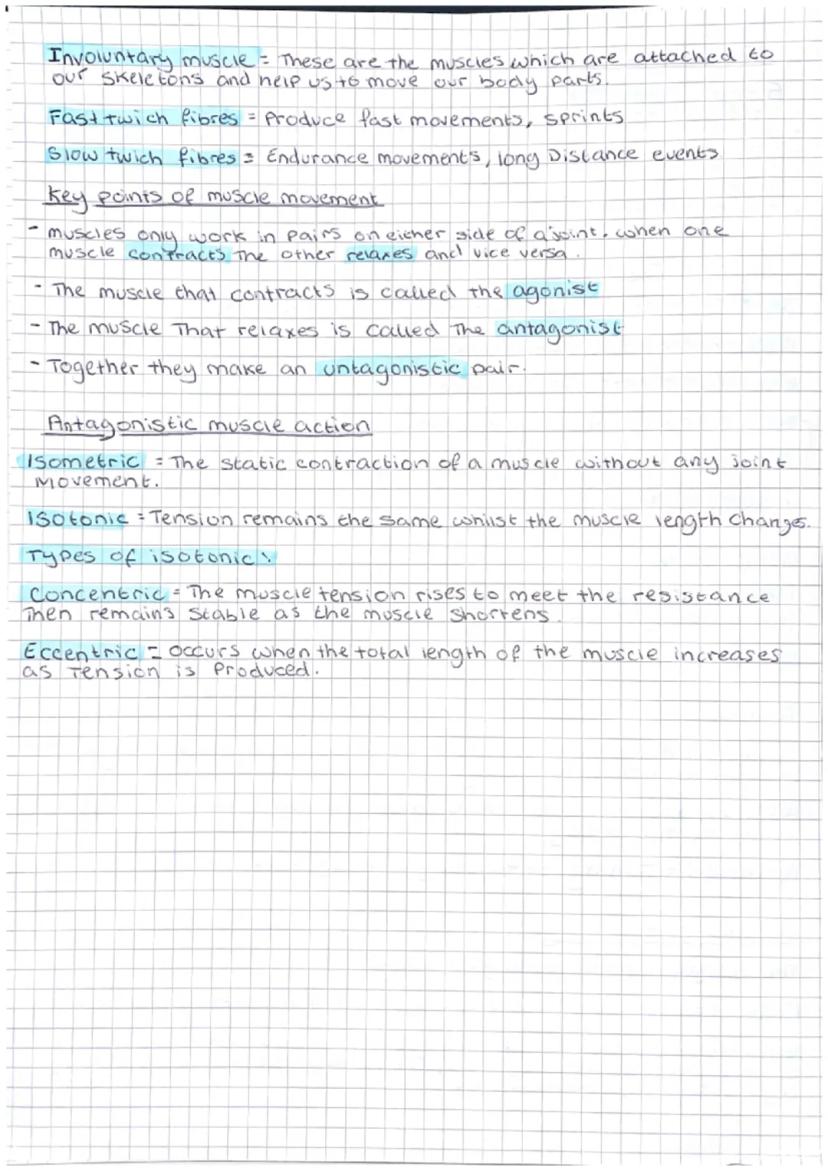 Involuntary muscle = These are the muscles which are attached to
our skeletons and help us to move our body parts.
Fast twich fibres = Produce fast movements, sprints
Slow twich fibres = Endurance movements, long Distance events
Key points of muscle movement
- muscles only work in pairs on either side of a joint. when one
muscle contracts The other relaxes and vice versa.
- The muscle that contracts is called the agonist
- The muscle That relaxes is called The antagonist
- Together they make an untagonistic pair.
Antagonistic muscle action
Isometric = The static contraction of a muscle without any joint
Movement.
Isotonic = Tension remains the same whilst the muscle length changes.
Types of isotonic:
Concentric = The muscle tension rises to meet the resistance
Then remains stable as the muscle shortens.
Eccentric = occurs when the total length of the muscle increases
as Tension is Produced.